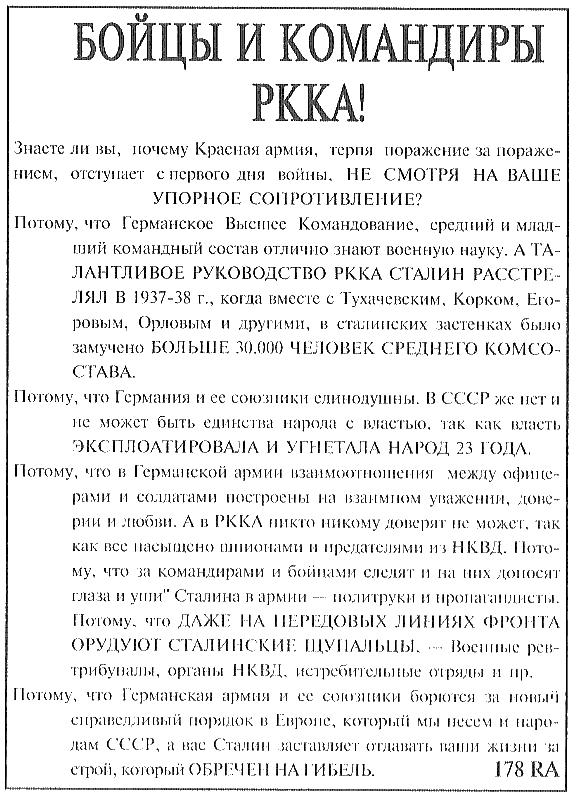 БОЙЦЫ И КОМАНДИРЫ
РККА!
Знаете ли вы, почему Красная армия, терпя поражение за пораже-
нием, отступает с первого дня войны, НЕ СМОТРЯ НА ВАШЕ
УПОРНОЕ СОПРОТИВЛЕНИЕ?
Потому, что Германское Высшее Командование, средний и млад-
ший командный состав отлично знают военную науку. А ТА-
ЛАНТЛИВОЕ РУКОВОДСТВО РККА СТАЛИН РАССТРЕ-
ЛЯЛ В 1937-38 г., когда вместе с Тухачевским, Корком, Его-
ровым, Орловым и другими, в сталинских застенках было
замучено БОЛЬШЕ 30.000 ЧЕЛОВЕК СРЕДНЕГО КОМСО-
СТАВА.
Потому, что Германия и ее союзники единодушны. В СССР же нет и
не может быть единства народа с властью, так как власть
ЭКСПЛОАТИРОВАЛА И УГНЕТАЛА НАРОД 23 ГОДА.
Потому, что в Германской армии взаимоотношения между офице-
рами и солдатами построены на взаимном уважении, дове-
рии и любви. А в РККА никто никому доверят не может, так
как все насыщено шпионами и предателями из НКВД. Пото-
му, что за командирами и бойцами следят и на них доносят
глаза и уши" Сталина в армии — политруки и пропагандисты.
Потому, что ДАЖЕ НА ПЕРЕДОВЫХ ЛИНИЯХ ФРОНТА
ОРУДУЮТ СТАЛИНСКИЕ ЩУПАЛЬЦЫ, — Военные рев-
трибуналы, органы НКВД, истребительные отряды и пр.
Потому, что Германская армия и ее союзники борются за новый
справедливый порядок в Европе, который мы несем и наро-
дам СССР, а вас Сталин заставляет отдавать ваши жизни за
строй, который ОБРЕЧЕН НА ГИБЕЛЬ. 178 RA